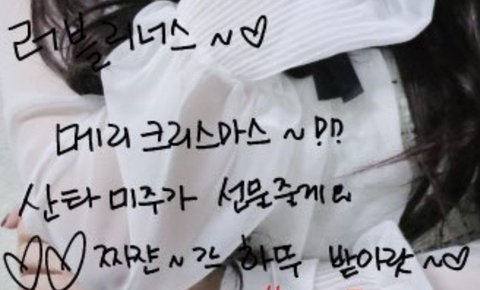 러블리너스 ~♡
메리크리스마스 ~!?!?
산타 미주가 선물줄게요
♡♡ 짜쟌 ~ 하뚜 받아랏 ~♡